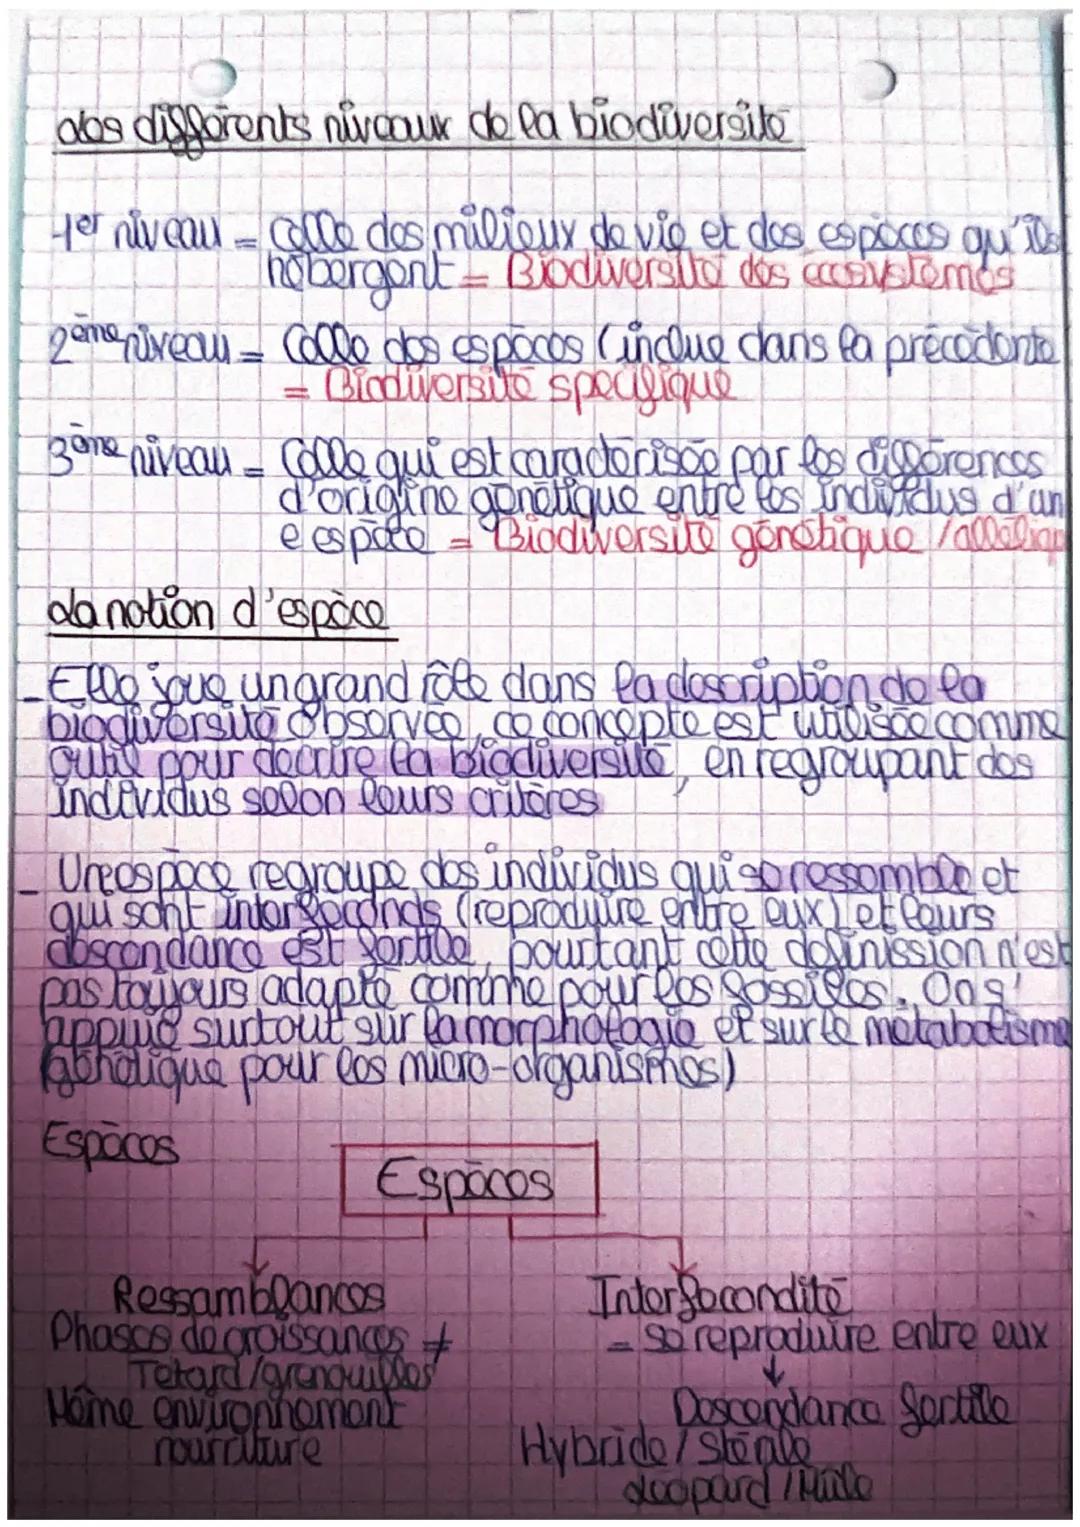 Les différents niveaux de la biodiversité
1er niveau = Celle des milieux de vie et des espèces qu'ils
hébergent = Biodiversité des écosystèmes
2ème niveau = Celle des espèces (inclue dans la précédente
= Biodiversité spécifique
3ème niveau = Celle qui est caractérisée par les différences
d'origine génétique entre les individus d'un
e espèce = Biodiversité génétique / alléliq
La notion d'espèce
- Elle joue un grand rôle dans la description de la
biodiversité observée, ce concepte est utilisée comme
outil pour décrire la biodiversité, en regroupant des
individus selon leurs critères
- Une espèce regroupe des individus qui se ressemble et
qui sont interféconds (reproduire entre eux) et leurs
descendance est fertile, pourtant cette définission n'est
pas toujours adapté comme pour les fossiles. On s'
appuie surtout sur la morphologie et sur le métabolisme
(génétique pour les micro-organismes)
Espèces
Espèces
Ressemblances
Interfécondité
Phases de croissances ≠
= se reproduire entre eux
Tétard/grenouilles
Même environnement
Descendance fertile
nourriture
Hybride / Stérile
Léopard / Mule